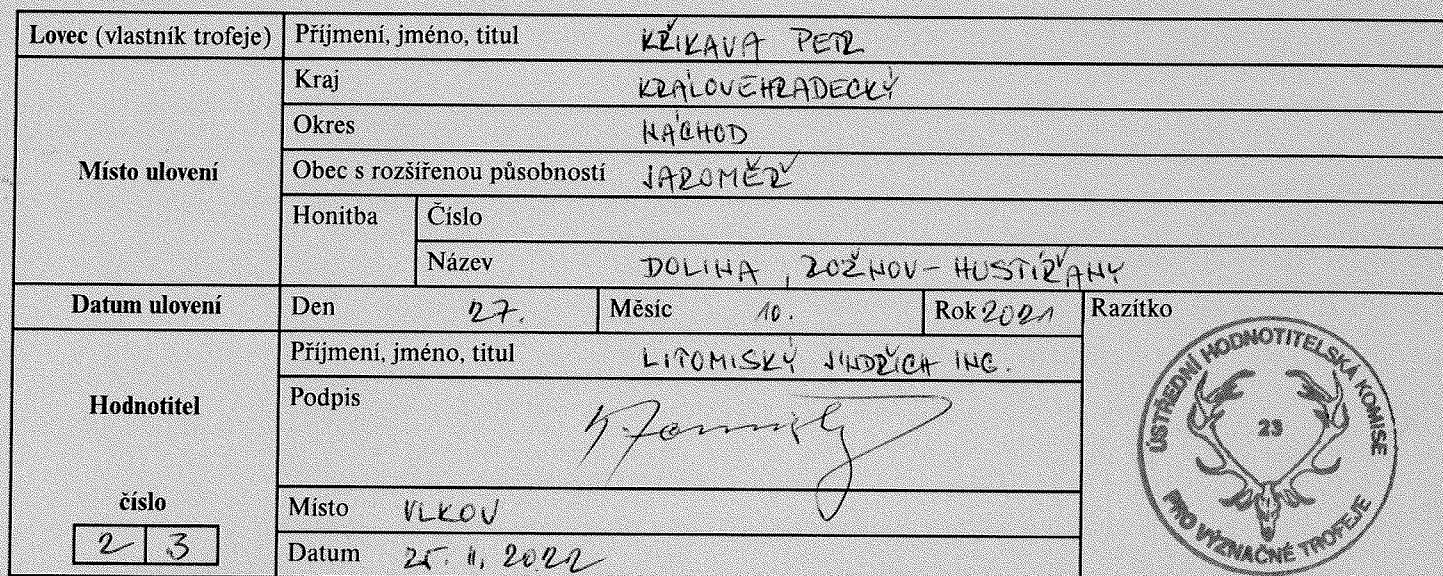 Lovec (vlastník trofeje) Příjmení, jméno, titul KŘIKAVA PETR
Místo ulovení
Kraj KRÁLOVEHRADECKÝ
Okres NÁCHOD
Obec s rozšířenou působností JAROMĚŘ
Honitba Číslo
Název DOLINA, ROŽNOV - HUSTÍŘANY
Datum ulovení Den 27. Měsíc 10. Rok 2021 Razítko
Hodnotitel
Příjmení, jméno, titul LITOMISKÝ JINDŘICH ING.
Podpis
číslo
2 3
Místo VLKOV
Datum 25. II. 2022
ÚSTŘEDNÍ HODNOTITELSKÁ KOMISE
23
PRO VÝZNAČNÉ TROFEJE